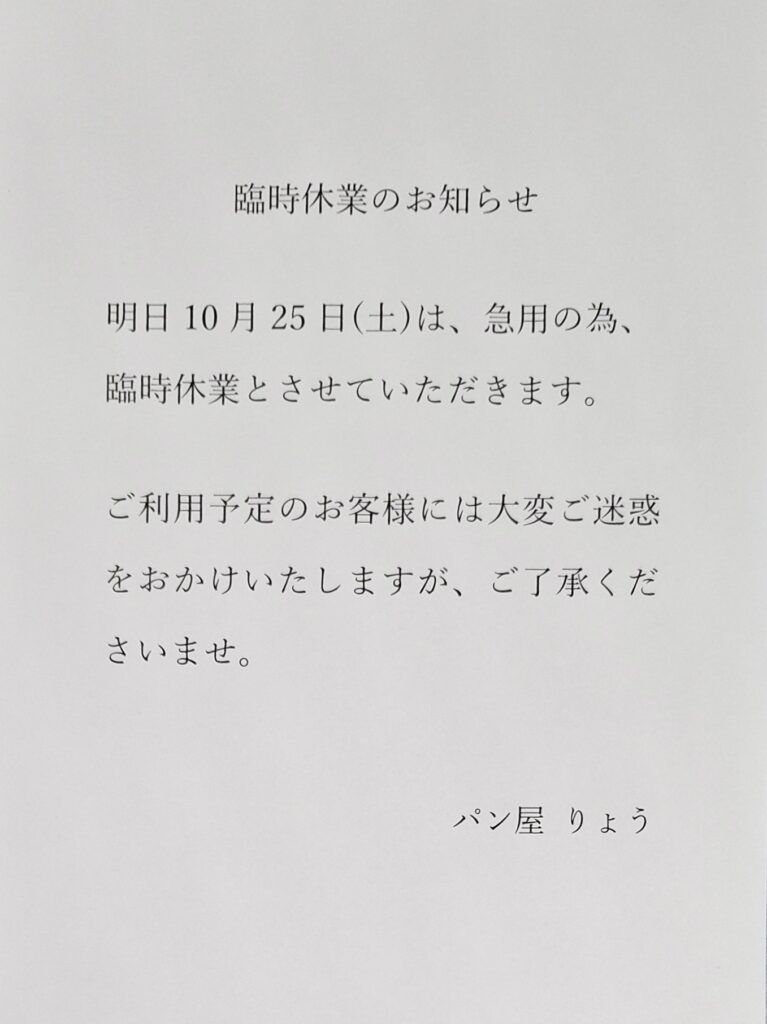 臨時休業のお知らせ
明日10月25日(土)は、急用の為、
臨時休業とさせていただきます。
ご利用予定のお客様には大変ご迷惑
をおかけいたしますが、ご了承くだ
さいませ。
パン屋 りょう